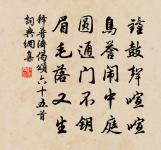 鐘鼓聲喧喧
鳥譽鬧中庭
圓通門不鑰
眉毛落又生
釋普濟偈頌六十五首
詞典網集